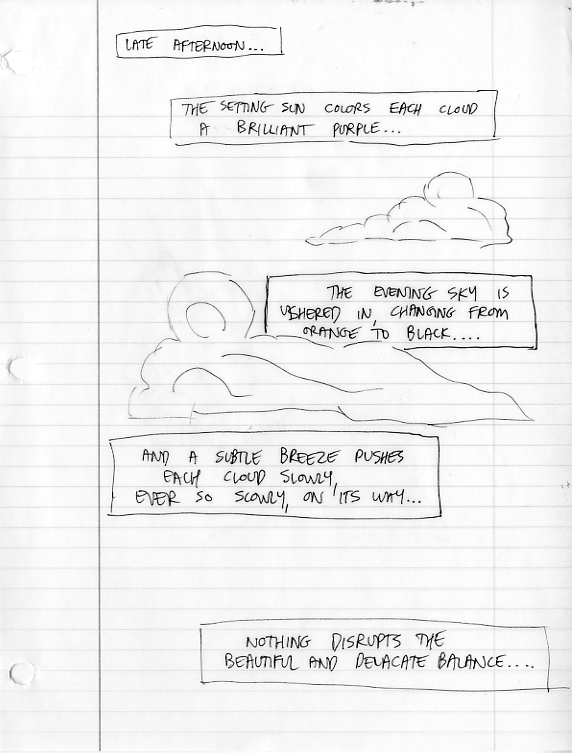 LATE AFTERNOON...
THE SETTING SUN COLORS EACH CLOUD
A BRILLIANT PURPLE...
THE EVENING SKY IS
USHERED IN, CHANGING FROM
ORANGE TO BLACK....
AND A SUBTLE BREEZE PUSHES
EACH CLOUD SLOWLY,
EVER SO SLOWLY, ON ITS WAY...
NOTHING DISRUPTS THE
BEAUTIFUL AND DELACATE BALANCE....